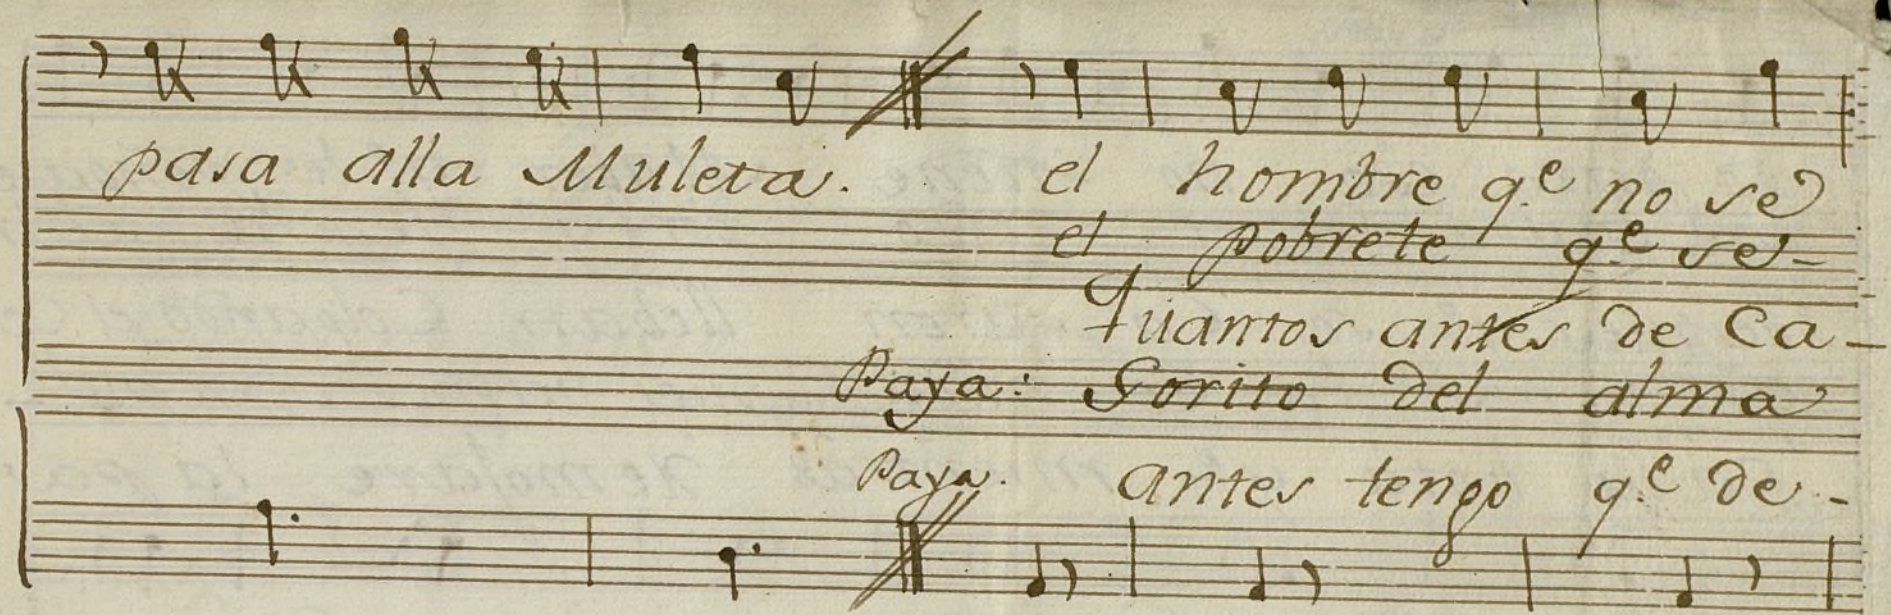 pasa alla Muleta. el hombre q.e no se
el pobrete q.e se-
Quantos antes de Ca-
Paya: Gorito del alma
Paya. antes tengo q.e de-